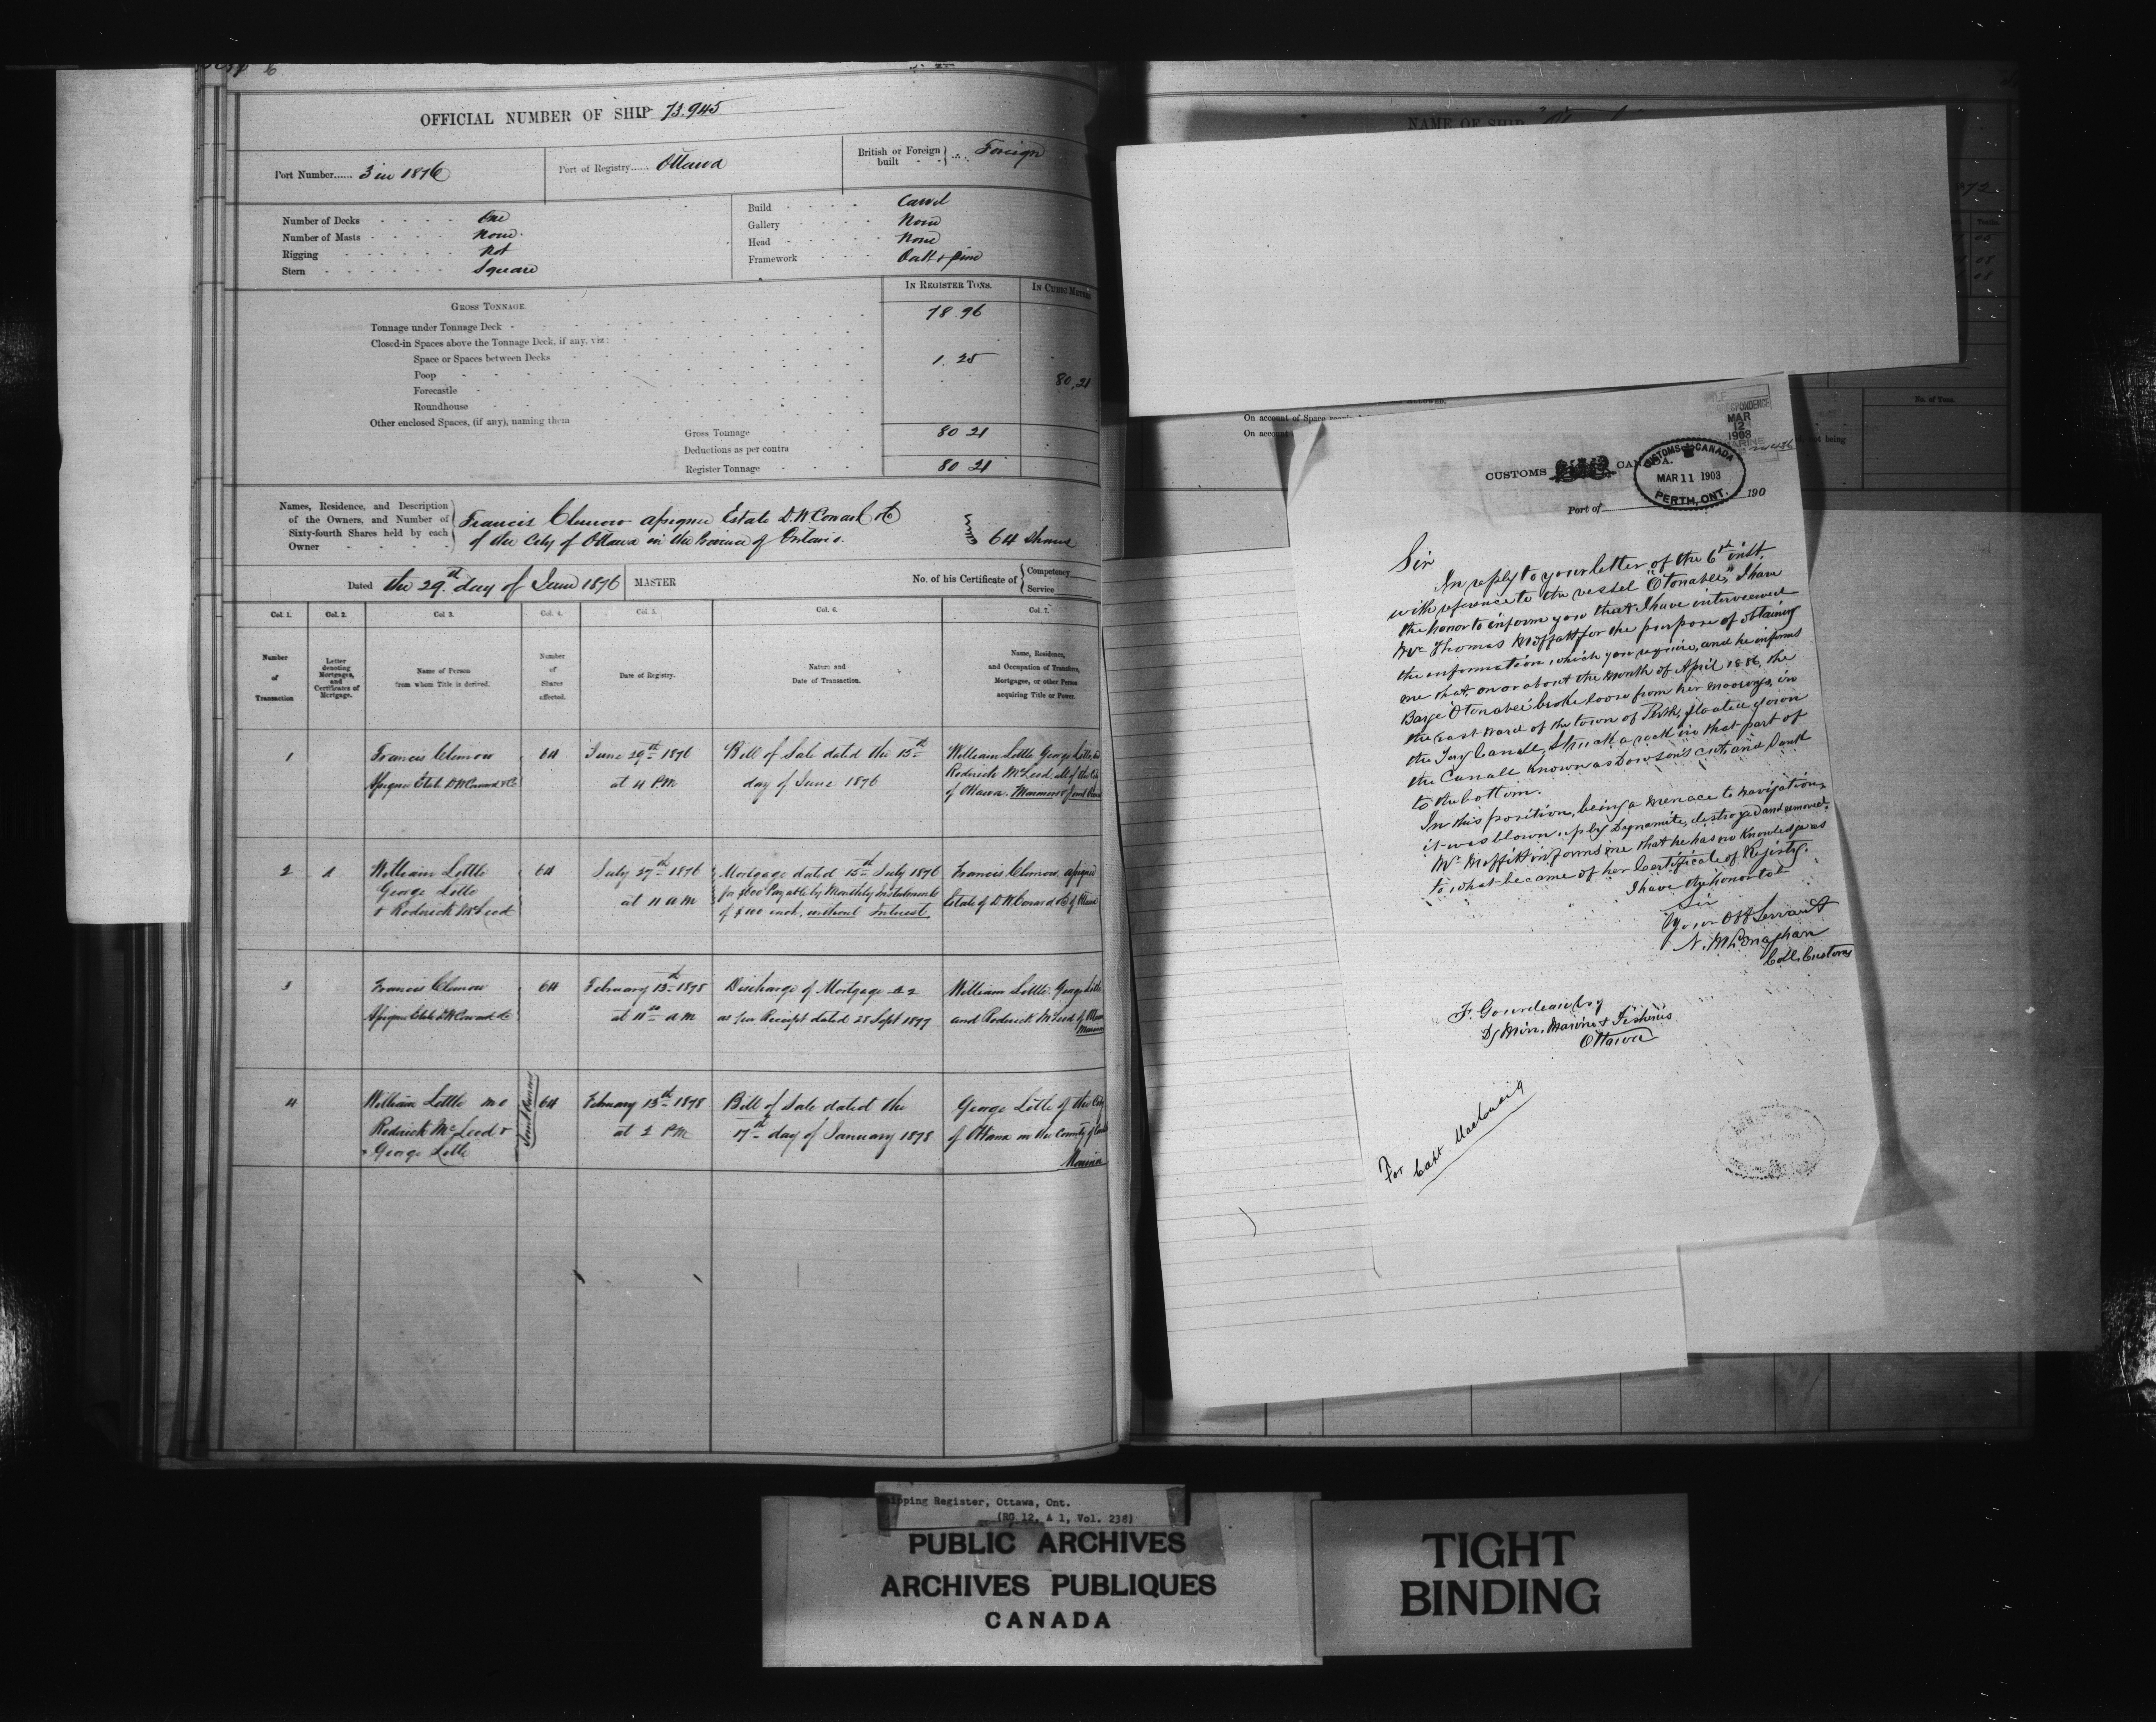 OFFICIAL NUMBER OF SHIP 73.945
Port Number...... 3 in 1876
Port of Registry...... Ottawa
British or Foreign built - - } ... Foreign
Number of Decks - - - - One
Number of Masts - - - - None.
Rigging - - - - Not
Stern - - - - Square
Build - - - - Carvel
Gallery - - - - None
Head - - - - None
Framework - - - - Oak & pine
IN REGISTER TONS.
IN CUBIC METRES
GROSS TONNAGE.
Tonnage under Tonnage Deck - 78.96
Closed-in Spaces above the Tonnage Deck, if any, viz:
Space or Spaces between Decks 1.25
Poop
80.21
Forecastle
Roundhouse
Other enclosed Spaces, (if any), naming them
Gross Tonnage 80 21
Deductions as per contra
Register Tonnage 80 21
Names, Residence, and Description
of the Owners, and Number of
Sixty-fourth Shares held by each
Owner
Francis Clemow Assignee Estate D.W. Coward & Co
of the City of Ottawa in the Province of Ontario.
64 Shares
Dated the 29th day of June 1876
MASTER
No. of his Certificate of { Competency
Service
Col. 1. Col. 2. Col. 3. Col. 4. Col. 5. Col. 6. Col. 7.
Number of Transaction
Letter denoting Mortgages, and Certificates of Mortgage.
Name of Person from whom Title is derived.
Number of Shares affected.
Date of Registry.
Nature and Date of Transaction.
Name, Residence, and Occupation of Transferee, Mortgagee, or other Person acquiring Title or Power.
1 Francis Clemow 64 June 29th 1876 Bill of Sale dated the 15th William Little George Little and
Assignee Estate D.W. Coward & Co at 4 P.M. day of June 1876 Roderick McLeod all of the City
of Ottawa.
2 A William Little 64 July 27th 1876 Mortgage dated 15th July 1876 Francis Clemow Assignee
George Little at 11 A M for $600 Payable by Monthly Instalments Estate of D.W. Coward & Co of Ottawa
& Roderick McLeod of $100 each, without Interest
3 Francis Clemow 64 February 13th 1878 Discharge of Mortgage A 2 William Little. George Little
Assignee Estate D.W. Coward & Co at 11 A M as per Receipt dated 28 Sept 1877 and Roderick McLeod of Ottawa
4 William Little 64 February 13th 1878 Bill of Sale dated the George Little of the City
Roderick McLeod & at 2 P M 17th day of January 1878 of Ottawa in the County of
George Little
Joint Owners
NAME OF SHIP
On account of Space
On account
No. of Tons.
MAR
12
1903
MARINE
CUSTOMS CANADA.
CUSTOMS CANADA
MAR 11 1903
PERTH, ONT.
Port of 190
Sir
In reply to your letter of the 6th inst.
with reference to the vessel "Otonabee," I have
the honor to inform you that I have interviewed
Mr Thomas Moffatt for the purpose of obtaining
the information which you require, and he informs
me that, on or about the Month of April 1886, the
Barge "Otonabee" broke loose from her moorings, in
the East Ward of the town of Perth, floated down
the Tay Canall, Struck a rock in that part of
the Canall known as Dowson's cut, and Sank
to the bottom.
In this position, being a menace to navigation,
it was blown up by Dynamite, destroyed and removed.
Mr Moffitt informs me that he has no knowledge as
to what became of her Certificate of Registry.
I have the honor to be
Sir
Your Obt Servant
N. McLenaghan
Coll. Customs
F. Gourdeau Esq
Dy Min. Marine & Fisheries
Ottawa
For Capt
Shipping Register, Ottawa, Ont.
(RG 12, A 1, Vol. 238)
PUBLIC ARCHIVES
ARCHIVES PUBLIQUES
CANADA
TIGHT
BINDING